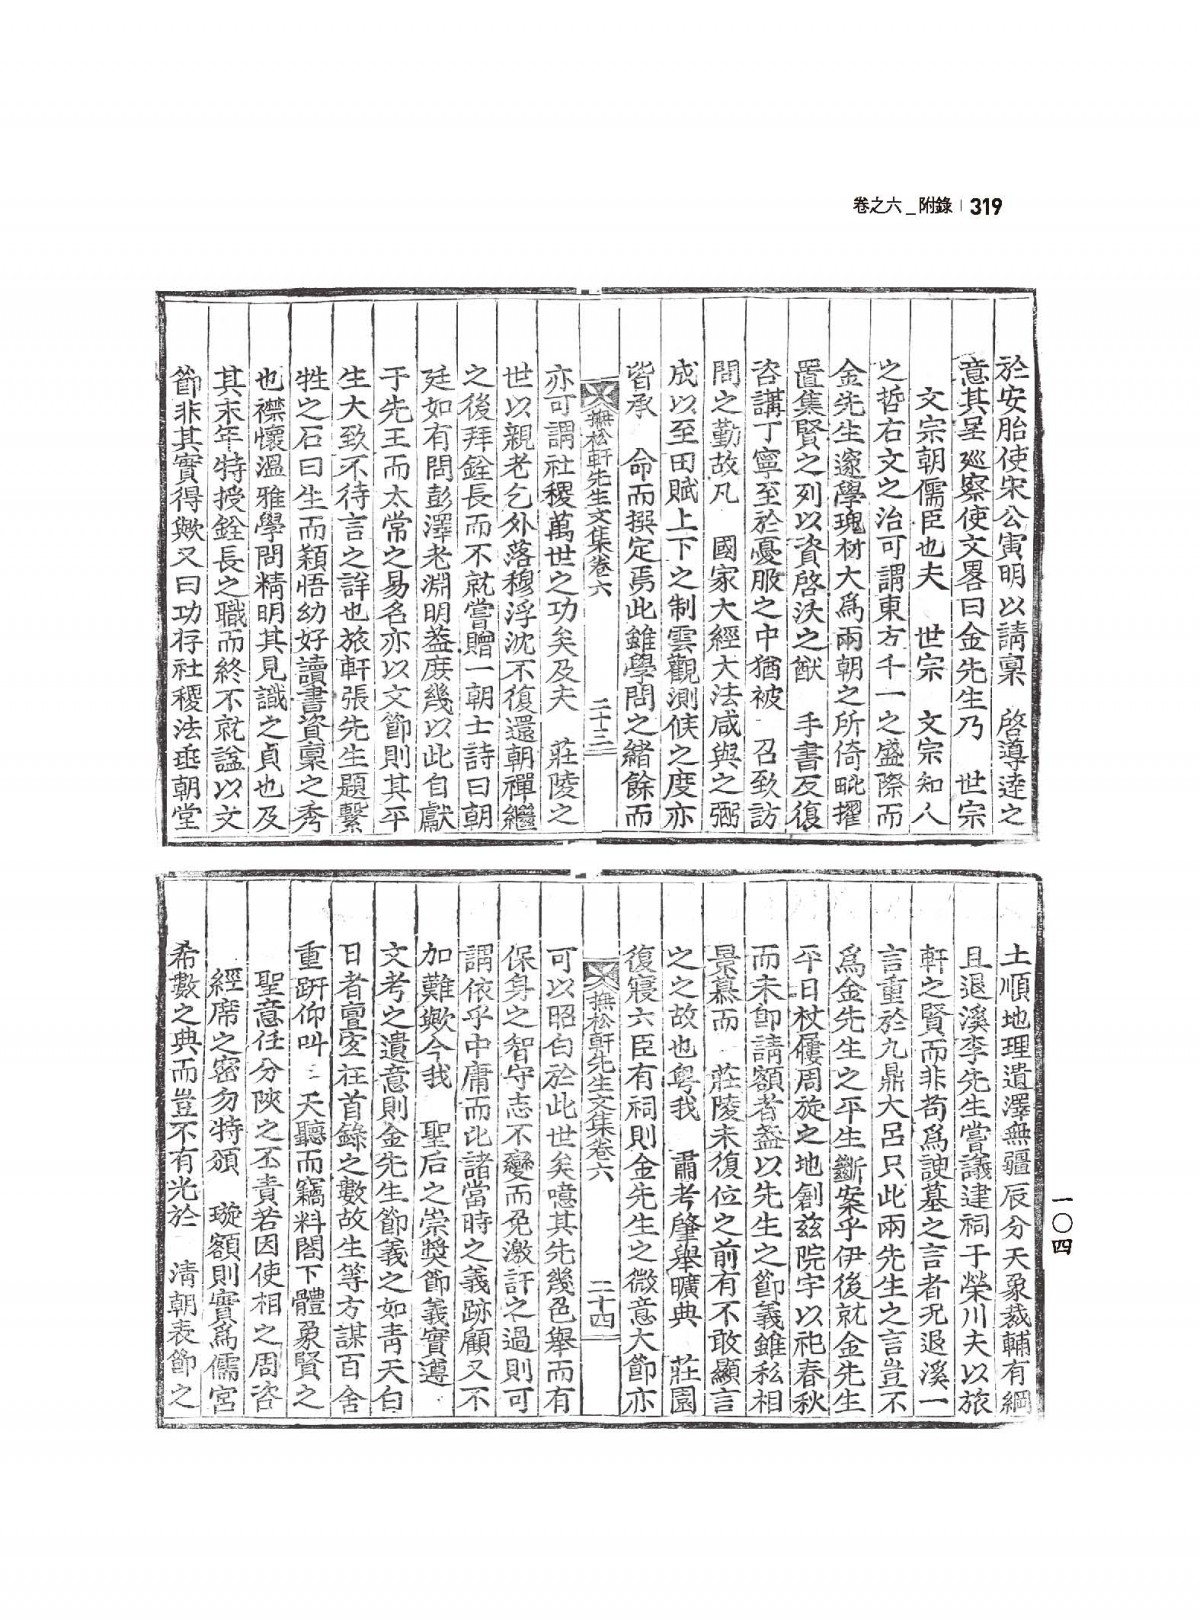 卷之六_附錄 | 319
於安胎使宋公寅明以請稟 啓導達之
意其呈廵察使文畧曰金先生乃 世宗
文宗朝儒臣也夫 世宗 文宗知人
之哲右文之治可謂東方千一之盛際而
金先生邃學瑰材大爲兩朝之所倚毗擢
置集賢之列以資啓沃之猷 手書反復
咨講丁寧至於憂服之中猶被 召致訪
問之勤故凡 國家大經大法咸與之弼
成以至田賦上下之制雲觀測候之度亦
皆承 命而撰定焉此雖學問之緖餘而
撫松軒先生文集卷六 二十三
亦可謂社稷萬世之功矣及夫 莊陵之
世以親老乞外落穆浮沈不復還朝禪繼
之後拜銓長而不就嘗贈一朝士詩曰朝
廷如有問彭澤老淵明盖庶幾以此自獻
于先王而太常之易名亦以文節則其平
生大致不待言之詳也旅軒張先生題繫
牲之石曰生而穎悟幼好讀書資稟之秀
也襟懷溫雅學問精明其見識之貞也及
其末年特授銓長之職而終不就諡以文
節非其實得歟又曰功存社稷法垂朝堂
土順地理遺澤無疆辰分天象裁輔有綱
且退溪李先生嘗議建祠于榮川夫以旅
軒之賢而非苟爲諛墓之言者旡退溪一
言重於九鼎大呂只此兩先生之言豈不
爲金先生之平生斷案乎伊後就金先生
平日杖屨周旋之地創玆院宇以祀春秋
而未卽請額者盖以先生之節義雖私相
景慕而 莊陵未復位之前有不敢顯言
之之故也粤我 肅考肇舉曠典 莊園
復寢六臣有祠則金先生之微意大節亦
撫松軒先生文集卷六 二十四
可以昭白於此世矣噫其先幾色舉而有
保身之智守志不變而免激訐之過則可
謂依乎中庸而比諸當時之義跡顧又不
加難歟今我 聖后之崇奬節義實遵
文考之遺意則金先生節義之如靑天白
日者亶宜在首錄之數故生等方謀百舍
重趼仰叫 天聽而竊料閤下體象賢之
聖意任分陝之丕責若因使相之周咨
經席之密勿特頒 璇額則實爲儒宮
希數之典而豈不有光於 淸朝表節之
一〇四